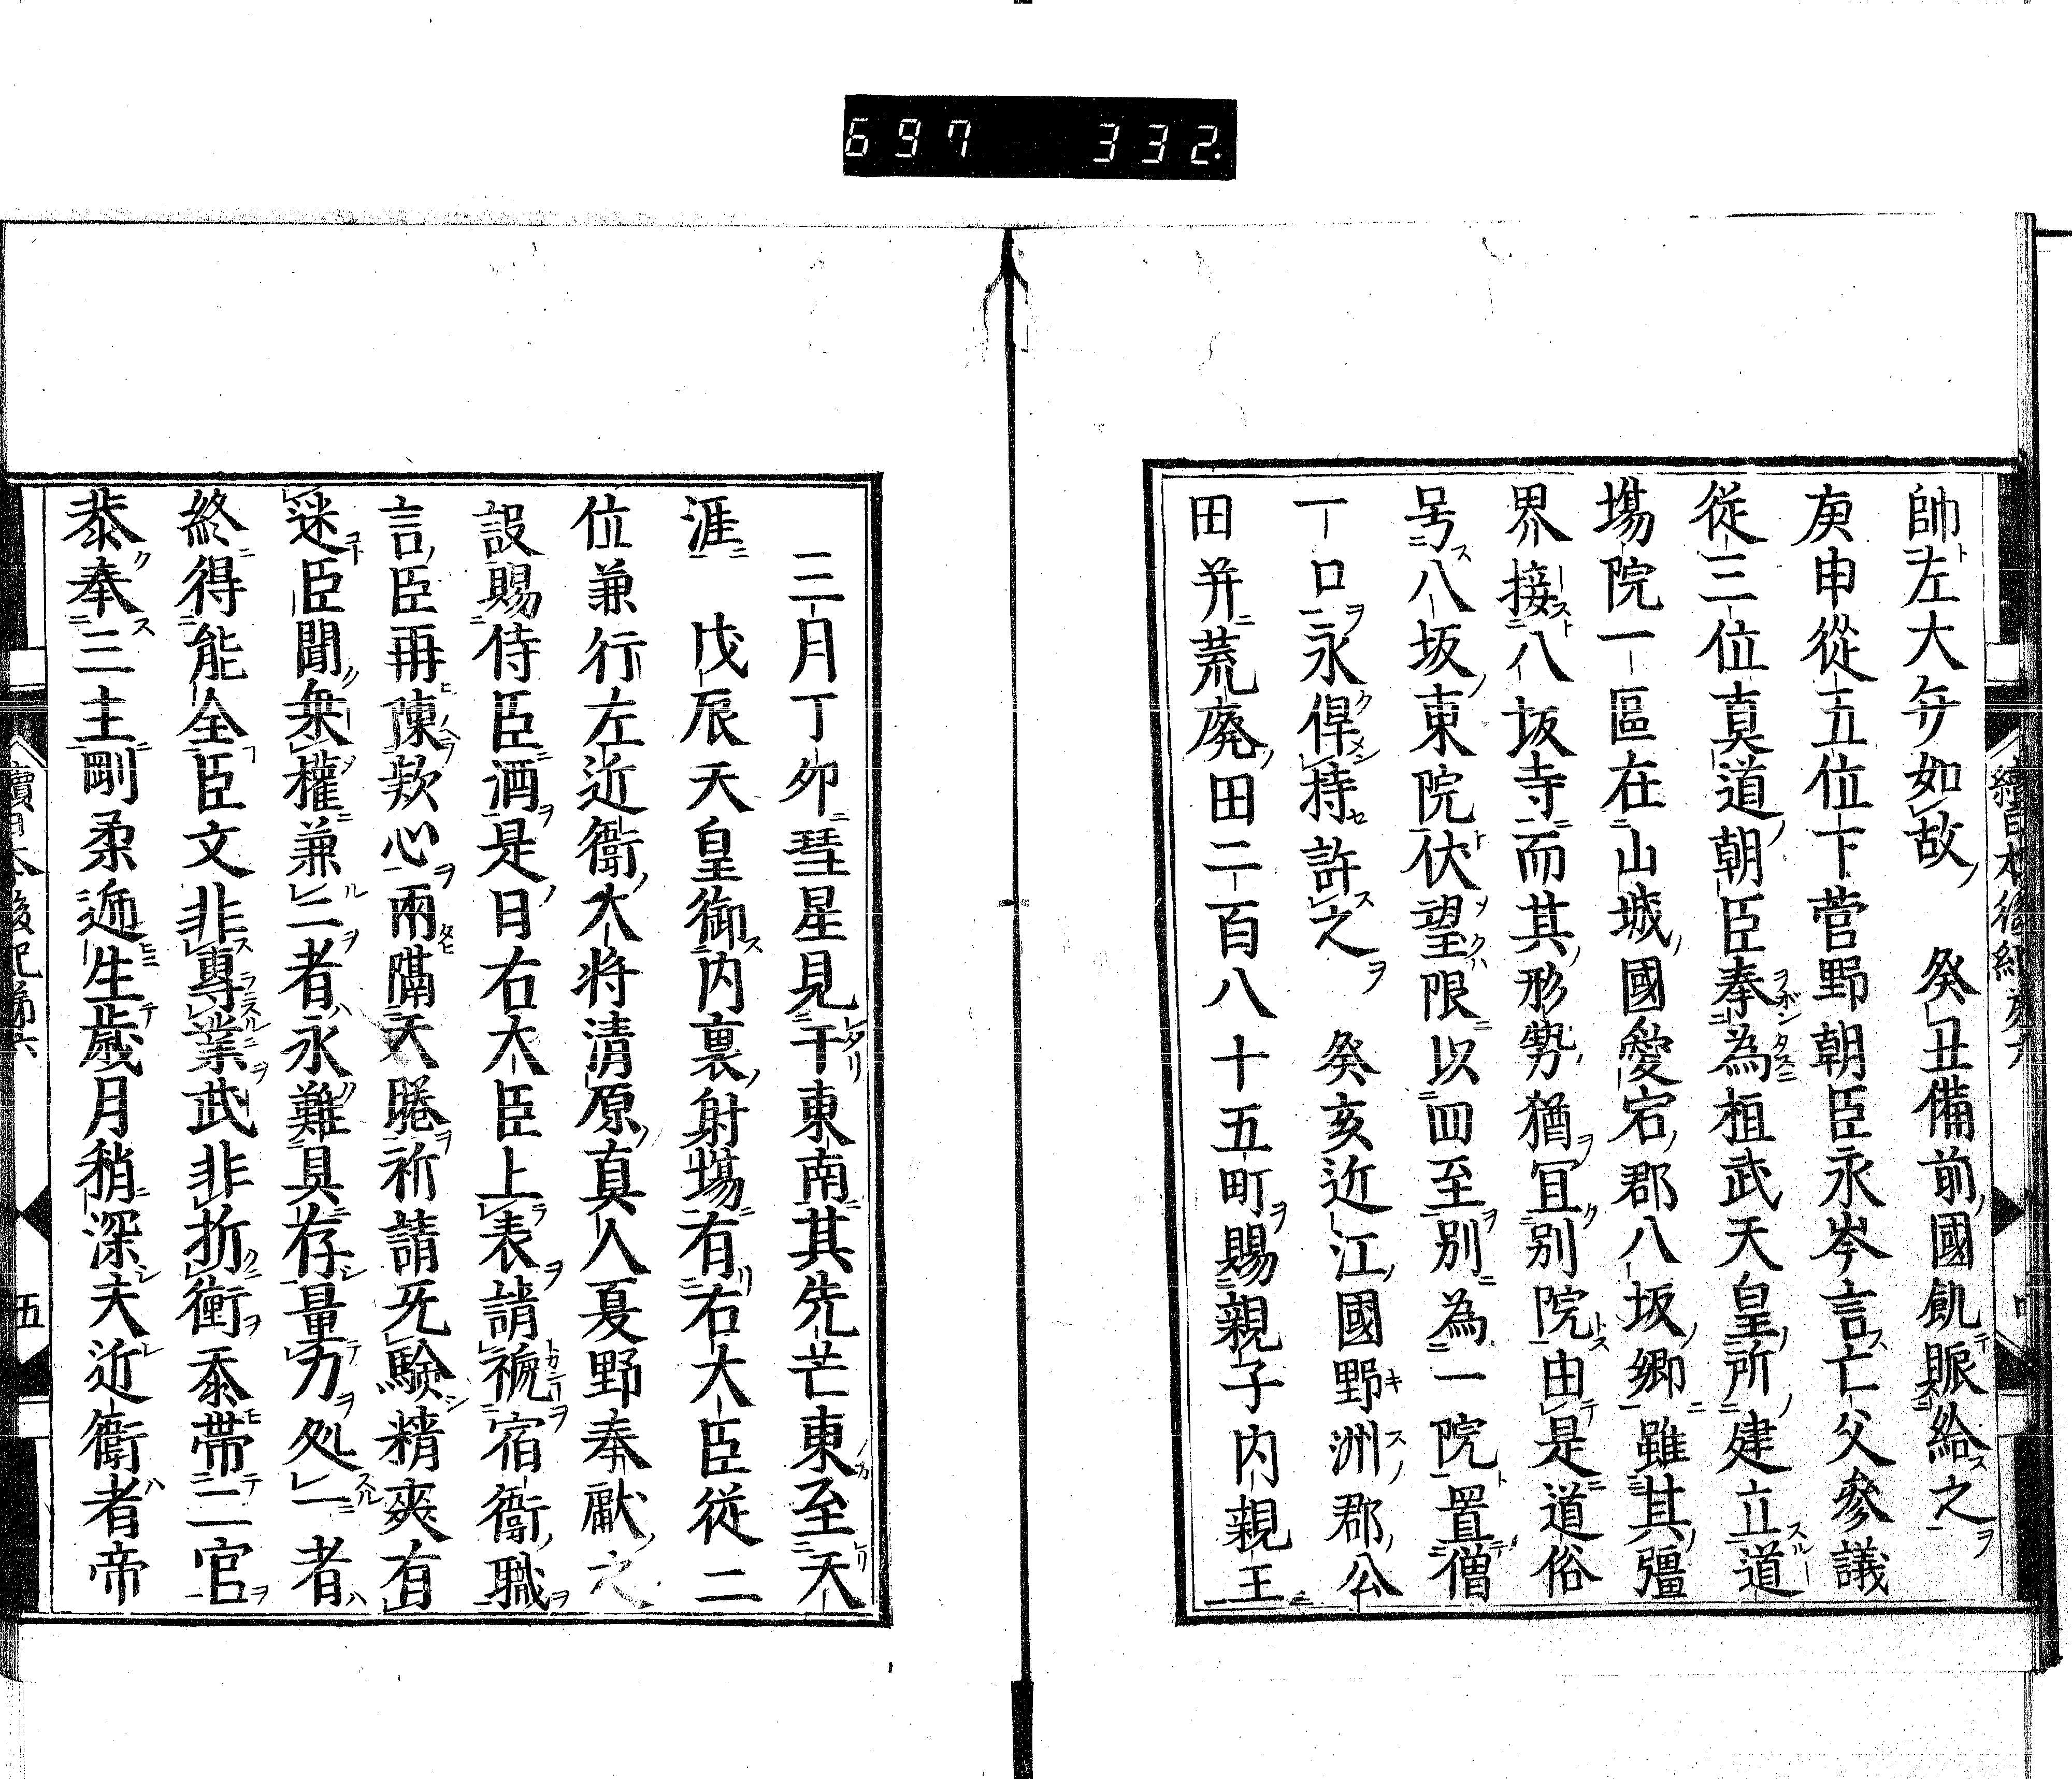 697 332
帥左大弁如故　癸丑備前國飢賑給之
庚申從五位下菅野朝臣永岑言亡父參議
從三位真道朝臣奉為桓武天皇所建立道
場院一區在山城國愛宕郡八坂鄉雖其彊
界接八坂寺而其形勢猶冝別院由是道俗
号八坂東院伏望限以四至別為一院置僧
一口永俾持許之　癸亥近江國野洲郡公
田并荒廢田二百八十五町賜親子内親王
三月丁夘彗星見于東南其先芒東至天
涯　戊辰天皇御内裏射場有右大臣從二
位兼行左近衞大将清原真人夏野奉獻之
設賜侍臣酒是日右大臣上表請褫宿衞職
言臣再陳欵心兩隔天睠祈請旡驗精爽有
迷臣聞無權兼二者永難具存量力处一者
終得能全臣文非專業武非折衝忝帶二官
恭奉三主剛柔遞生歲月稍深夫近衞者帝
續日本後紀第六
五